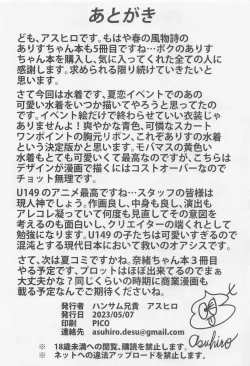 あとがき
ども、アスヒロです。もはや春の風物詩の
ありすちゃん本も5冊目ですね…ボクのありす
ちゃん本を購入し、気に入ってくれた全ての人に
感謝します。求められる限り続けていきたいと
思います。
さて今回は水着です、夏恋イベントでのあの
可愛い水着をいつか描いてやろうと思ってたの
です。イベント絵だけで終わらせていい衣装じゃ
ありませんよ！爽やかな青色、可憐なスカート
ワンポイントの胸元リボン、これぞありすの水着
という決定版かと思います。モバマスの黄色い
水着もとても可愛くて最高なのですが、こちらは
デザインが漫画で描くにはコストオーバーなので
チョット無理です。
U149のアニメ最高ですね…スタッフの皆様は
現人神でしょう。作画良し、中身も良し、演出も
アレコレ凝っていて何度も見直してその意図を
考えるのも面白いし、クリエイターの端くれとして
勉強になります。U149の子たちは可愛すぎるので
混沌とする現代日本において救いのオアシスです。
さて、次は夏コミですかね。奈緒ちゃん本3冊目
やる予定です、プロットはほぼ出来てるのでまぁ
大丈夫かな？同じくらいの時期に商業漫画も
載る予定なんでご期待くださいね。
発行者 ハンサム兄貴 アスヒロ
発行日 2023/05/07
印刷 PICO
連絡先 asuhiro.desu@gmail.com
※ 18歳未満の閲覧、購読を禁止します。
※ ネットへの違法アップロードを禁止します。
Asuhiro